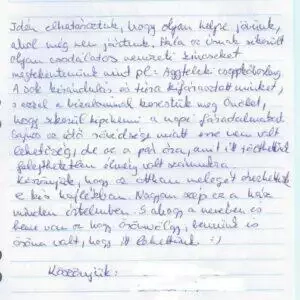 Idén elhatároztuk, hogy olyan helyre jövünk,
ahol még nem jártunk. Hála az Úrnak sikerült
olyan csodálatos nemzeti kincseket
megtekintenünk mint pl.: Aggteleki cseppkőbarlang.
A sok kirándulás és túra kifárasztott minket,
s ezzel a bizalommal kerestük meg Önöket,
hogy sikerül kipihenni a napi fáradalmakat
Sajnos az idő rövidsége miatt erre nem volt
lehetőség, de az a pár óra, amit itt tölthettünk
felejthetetlen élmény volt számunkra.
Köszönjük, hogy az otthon melegét élvezhettük
e kis hajlékban. Nagyon szép ez a ház
minden értelemben. S ahogy a nevében is
benne van az hogy örömvölgy, bennünk is
öröm volt, hogy itt lehettünk :)
Köszönjük: